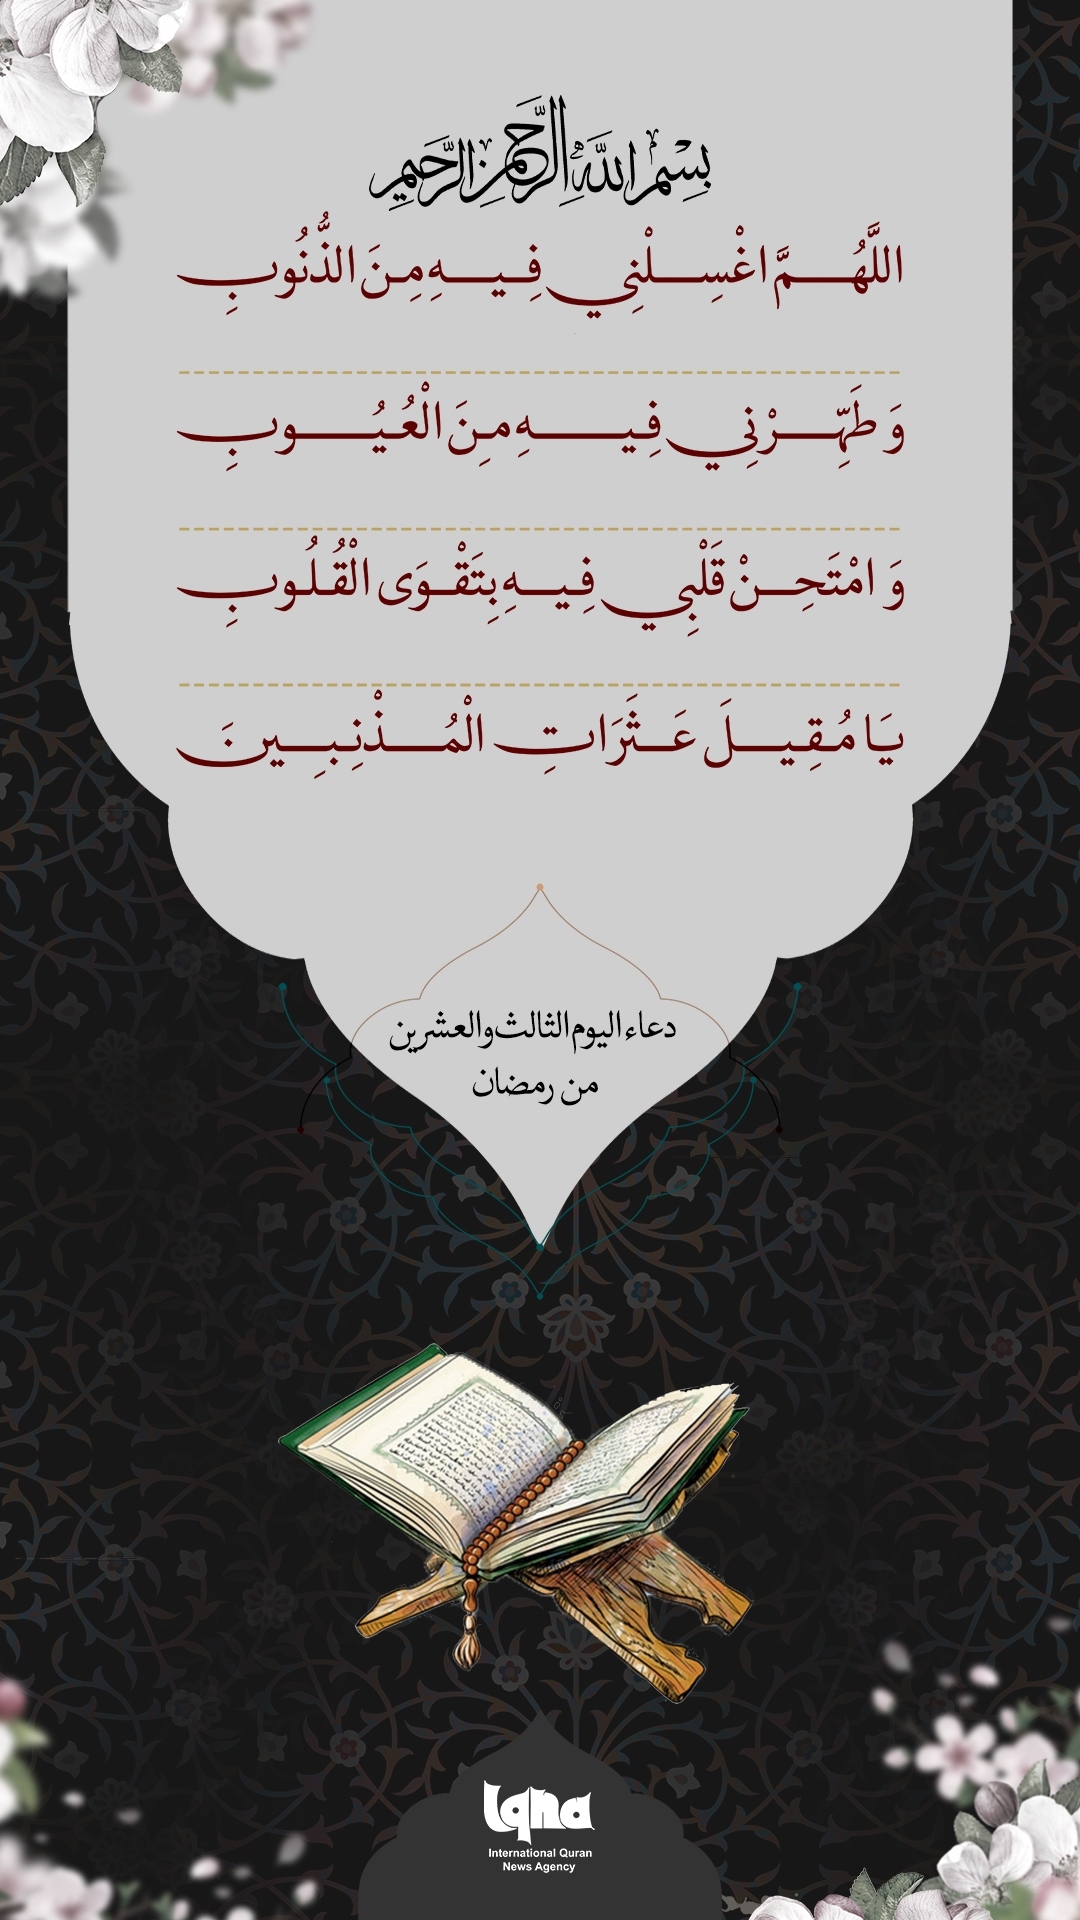 بِسْمِ اللَّهِ الرَّحْمٰنِ الرَّحِيمِ
اللَّهُمَّ اغْسِلْنِي فِيهِ مِنَ الذُّنُوبِ
وَ طَهِّرْنِي فِيهِ مِنَ الْعُيُوبِ
وَ امْتَحِنْ قَلْبِي فِيهِ بِتَقْوَى الْقُلُوبِ
يَا مُقِيلَ عَثَرَاتِ الْمُذْنِبِينَ
دعاء اليوم الثالث والعشرين
من رمضان
Iqna
International Quran
News Agency